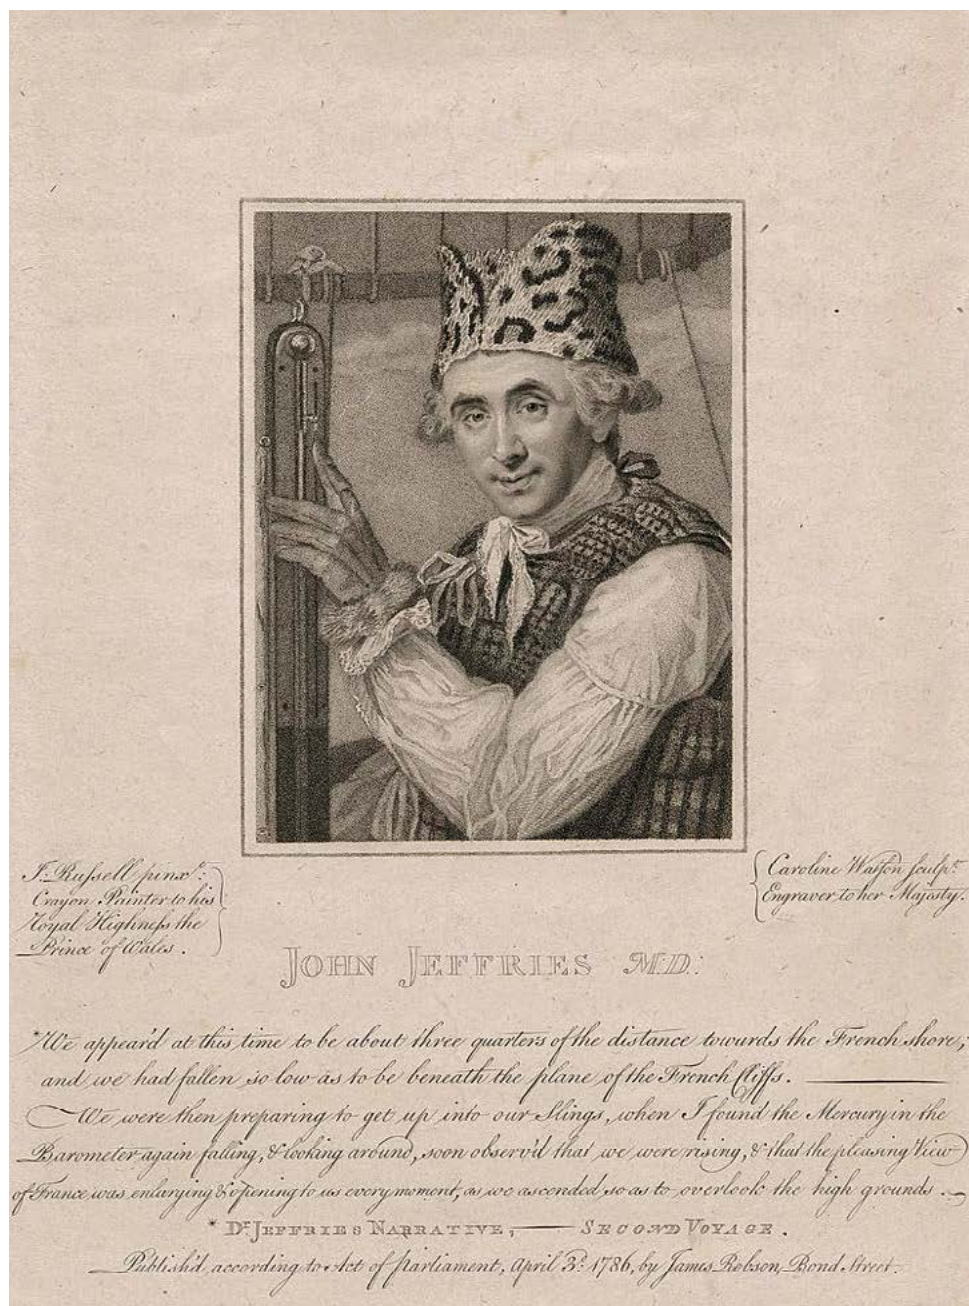 J. Russell pinxt.
Crayon Painter to his
Royal Highness the
Prince of Wales.
Caroline Watson sculpt.
Engraver to her Majesty.
JOHN JEFFRIES M.D.
*We appear'd at this time to be about three quarters of the distance towards the French shore;
and we had fallen so low as to be beneath the plane of the French Cliffs. ———
We were then preparing to get up into our Slings, when I found the Mercury in the
Barometer again falling, & looking around, soon observ'd that we were rising, & that the pleasing View
of France was enlarging & opening to us every moment, as we ascended, so as to overlook the high grounds.
* DR. JEFFRIES NARRATIVE, —— SECOND VOYAGE.
Publish'd according to Act of Parliament, April 3d. 1786, by James Robson, Bond Street.